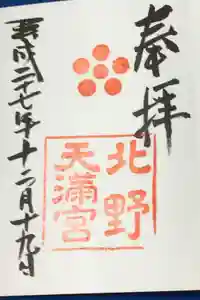 奉拝
北野
天満宮
平成二十七年十二月十九日